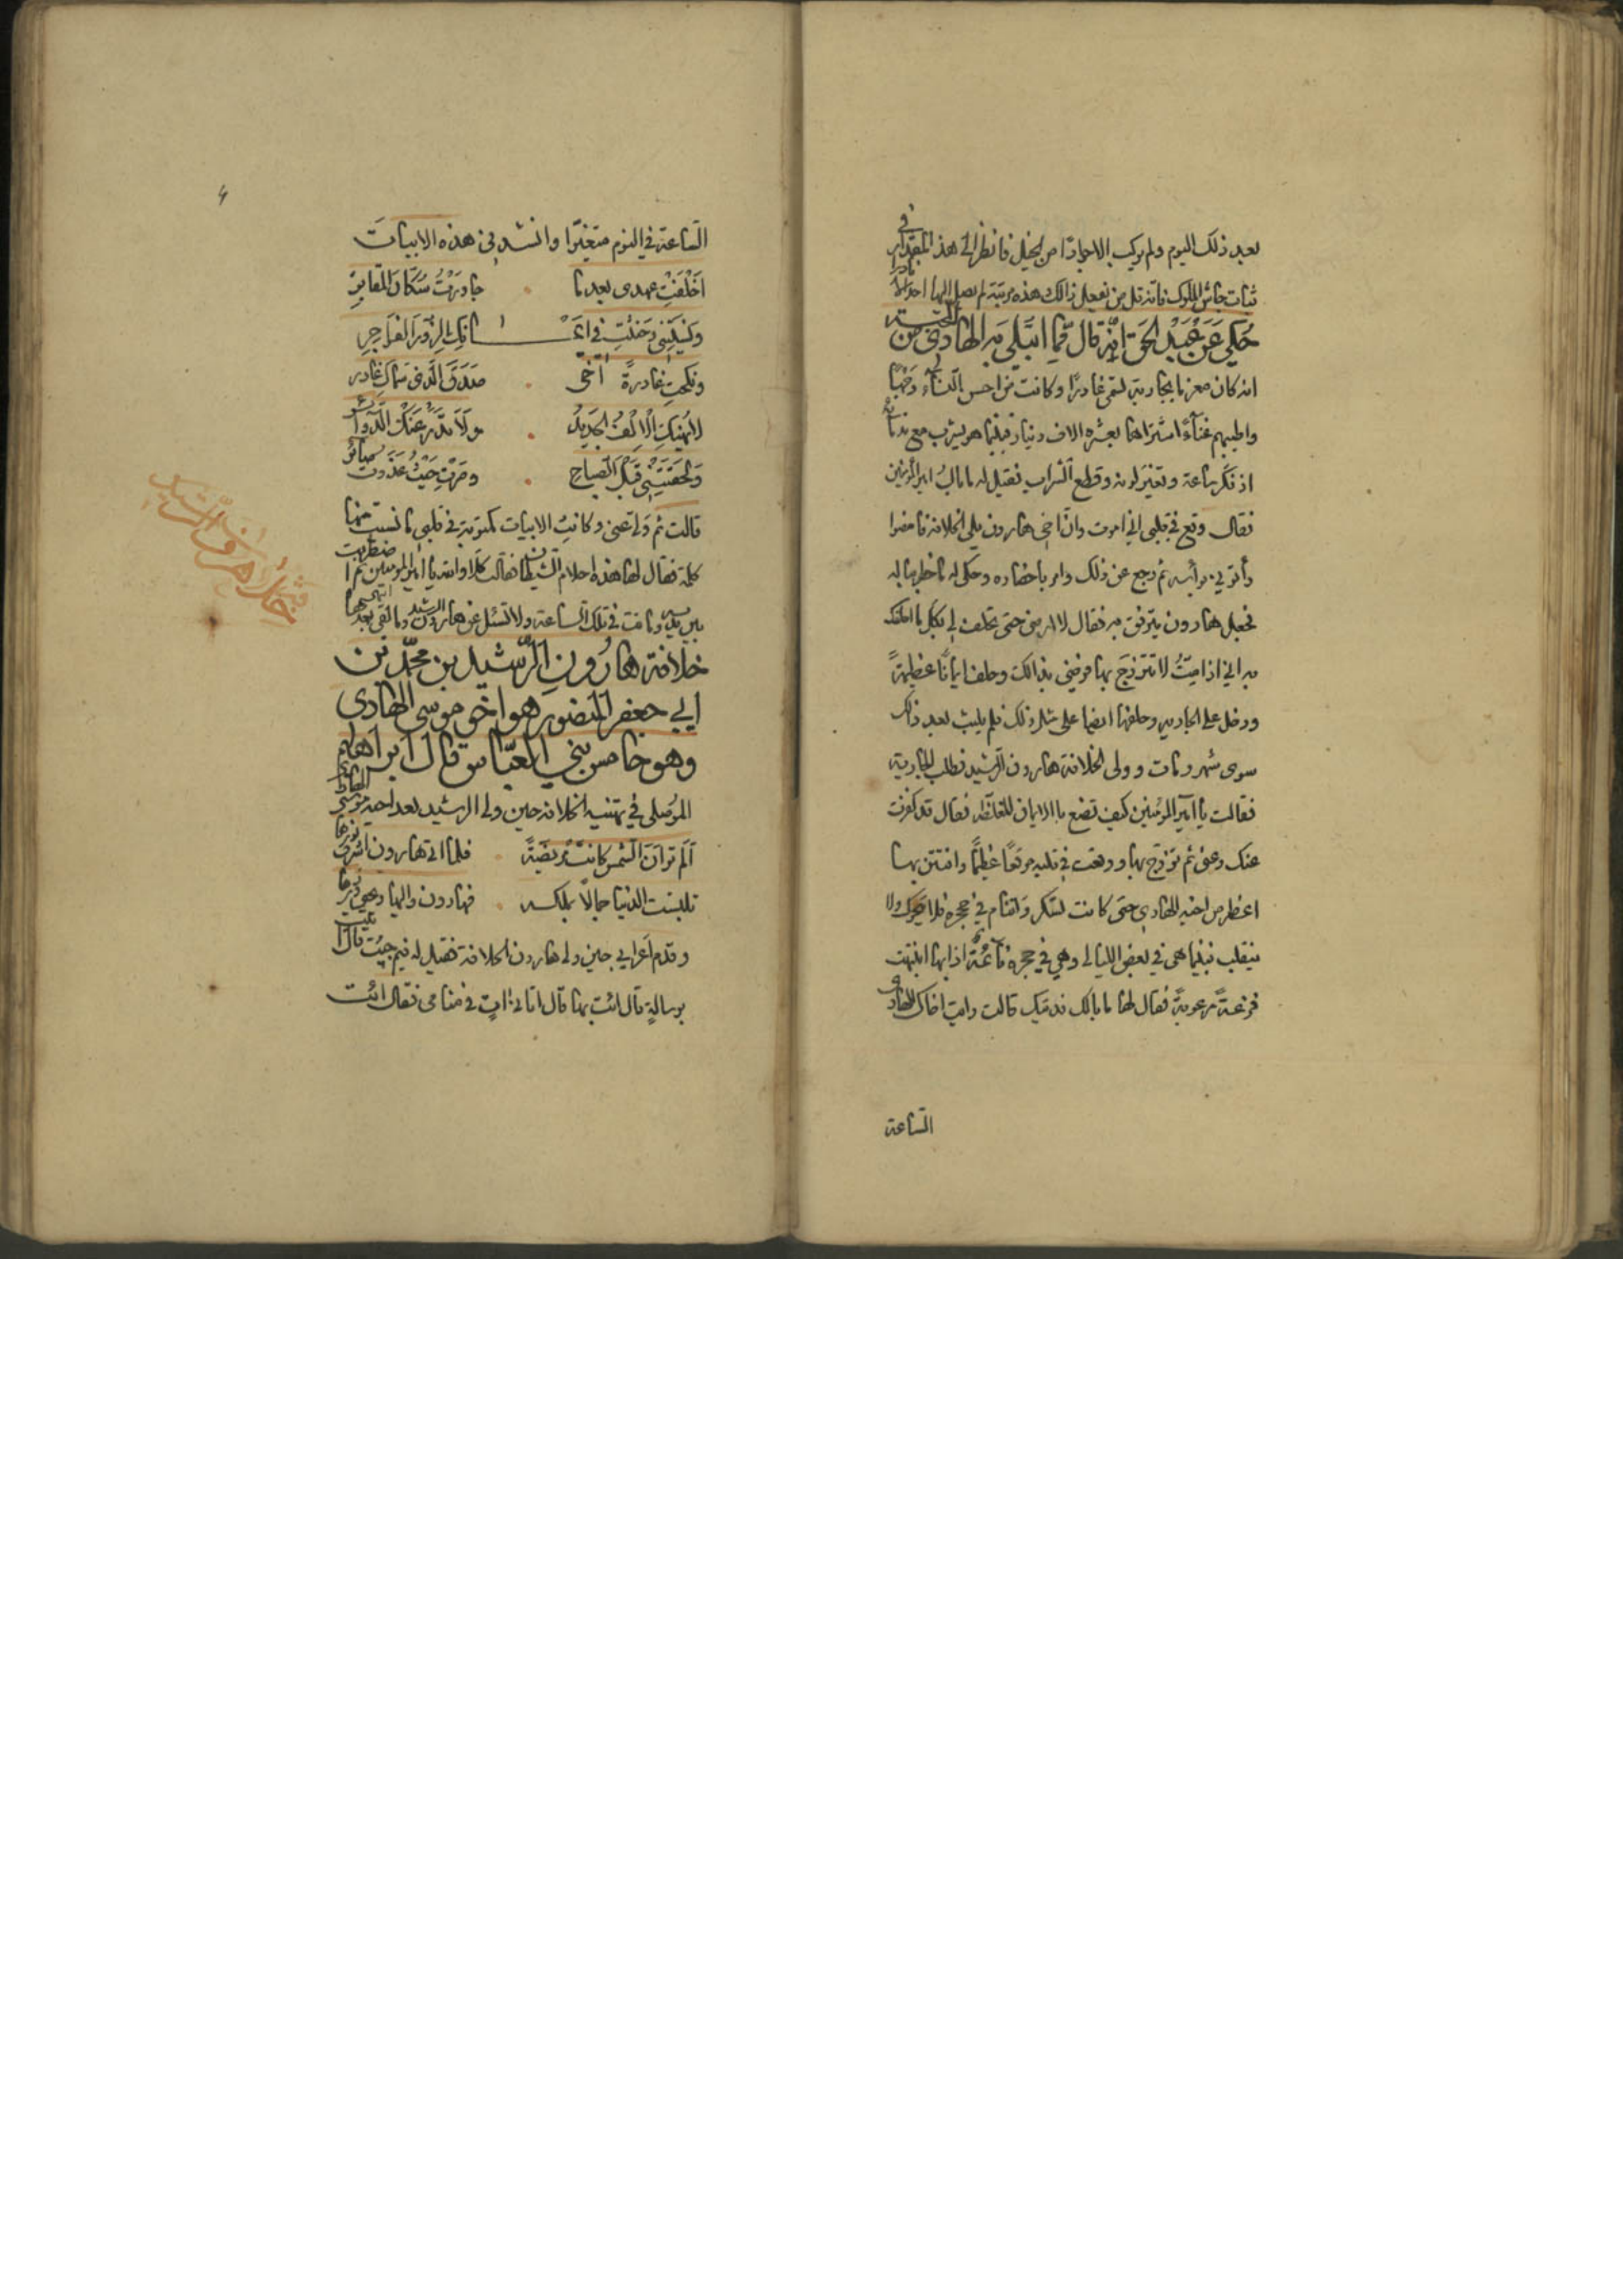 بعد ذلك اليوم ولم يركب الا جوادًا من الخيل فانظر الى هذا المقدار في
ثبات جأش الملوك فانه قل من يفعل ذالك هذه مرتبة لم يصل اليها احد الا نادرا
حُكي عَن عَبْد الحَق انّه قال فّما ابتَلي به الهادي من المحبة
انه كان مغرما بجارية تسمّى غادرًا وكانت من احسن النسآء وجهًا
واطيبهم غنآءً اشتراها بعشره الاف دينار فبينما هو يشرب مع ندمائه
اذ فكّر ساعة وتغيّر لونه وقطع الشراب فقيل له ما بالُ امير المؤمنين
فقال وقع في قلبي اني اموت وانّ اخي هارون يلي الخلافة فامضوا
وأتوني برأسه ثم رجع عن ذلك وامر باحضاره وحكى له ما خطر بباله
فجعل هارون يترفق به فقال لا ارضى حتى تحلف لي بكل ما احلفك
به اني اذا مِتُّ لا تتزوجَ بها فرضي بذالك وحلف ايمانًا عظيمةً
ودخل على الجارية وحلفها ايضا على مثل ذلك فلم يلبث بعد ذلك
سوى شهر ومات وولى الخلافة هارون الرشيد فطلب الجارية
فقالت يا امير المؤمنين كيف تصنع بالايمان المغلظة فقال قد كفرت
عنك وعني ثم تزوّج بها ووقعت في قلبه موقعًا عظيمًا وافتتن بها
اعظم من اخيه الهادي حتى كانت تسكر وتنام في حجره فلا يتحرك ولا
ينقلب فبينما هى في بعض الليالي وهي في حجره نائمة اذا بها انتبهت
فزعةً مرعوبةً فقال لها ما بالك فديتك قالت رايت اخاك الهادي
الساعة
الساعة في النوم متغيّرا وانشدني هذه الابيات
اَخْلَفْتِ عهدى بعدما جاورْتُ سُكّانَ المقابرِ
ونسيتِني وحنثتِ في ايمانِك الزورَ الفواجرِ
ونكحتِ غادرةً اخي صدق الذي سماك غادر
لا يُهنِكِ الالفُ الجديدُ ولا تدُر عنك الدوائر
ولحقتِني قبل الصباحِ وصرتِ حيثُ غدوتُ صائر
قالت ثم ولى عني وكانت الابيات مكتوبة في قلبي ما نسيت منها
كلمة فقال لها هذه احلام الشيطان فقالت كلا والله يا امير المومنين ثم اضطربت
بين يديه وماتت في تلك الساعة ولا تسئل عن هارون الرشيد وما لقي بعدها انتهى
خلافة هارُون الرّشيد بن محمّد بن
ابي جعفر المنصور هو اخي موسى الهادى
وهو خامس بني العبّاس قال ابراهيم
الموصلي في تهنيه الخلافة حين ولى الرشيد بعد اخيه موسى الهادي
اَلَم تر اَنّ الشمس كانت مريضَةً فلما اتى هارون اشرق نورها
تلبست الدنيا جمالاً بملكه فهارون واليها ويحيى وزيرها
وقدم اَعرابي حين ولى هارون الخلافة فقيل له فيم جئت قال اتيت
برسالةٍ قال ائت بها قال اتاني اتٍ في منامى فقال ائت
خلافة هارون الرشيد